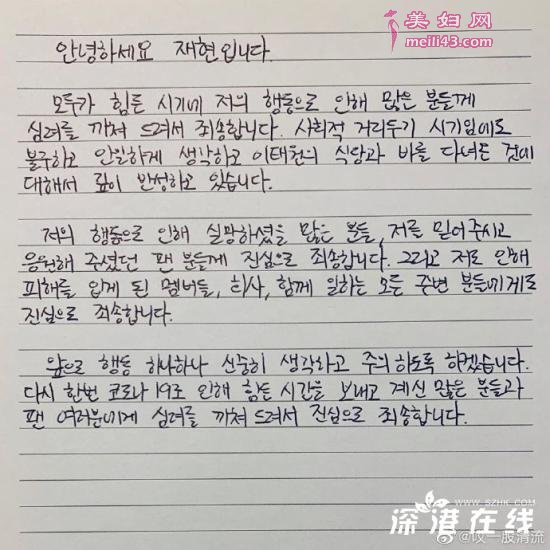 美妇网
meili43.com
안녕하세요 재현입니다.
모두가 힘든 시기에 저의 행동으로 인해 많은 분들께
심려를 끼쳐 드려서 죄송합니다. 사회적 거리두기 시기임에도
불구하고 안일하게 생각하고 이태원의 식당과 바를 다녀온 것에
대해서 깊이 반성하고 있습니다.
저의 행동으로 인해 실망하셨을 많은 분들, 저를 믿어주시고
응원해 주셨던 팬 분들께 진심으로 죄송합니다. 그리고 저로 인해
피해를 입게 된 멤버들, 회사, 함께 일하는 모든 주변 분들에게도
진심으로 죄송합니다.
앞으로 행동 하나하나 신중히 생각하고 주의 하도록 하겠습니다.
다시 한번 코로나 19로 인해 힘든 시간을 보내고 계신 많은 분들과
팬 여러분에게 심려를 끼쳐 드려서 진심으로 죄송합니다.
WWW.SZHK.COM
深港在线
@哎一股清流